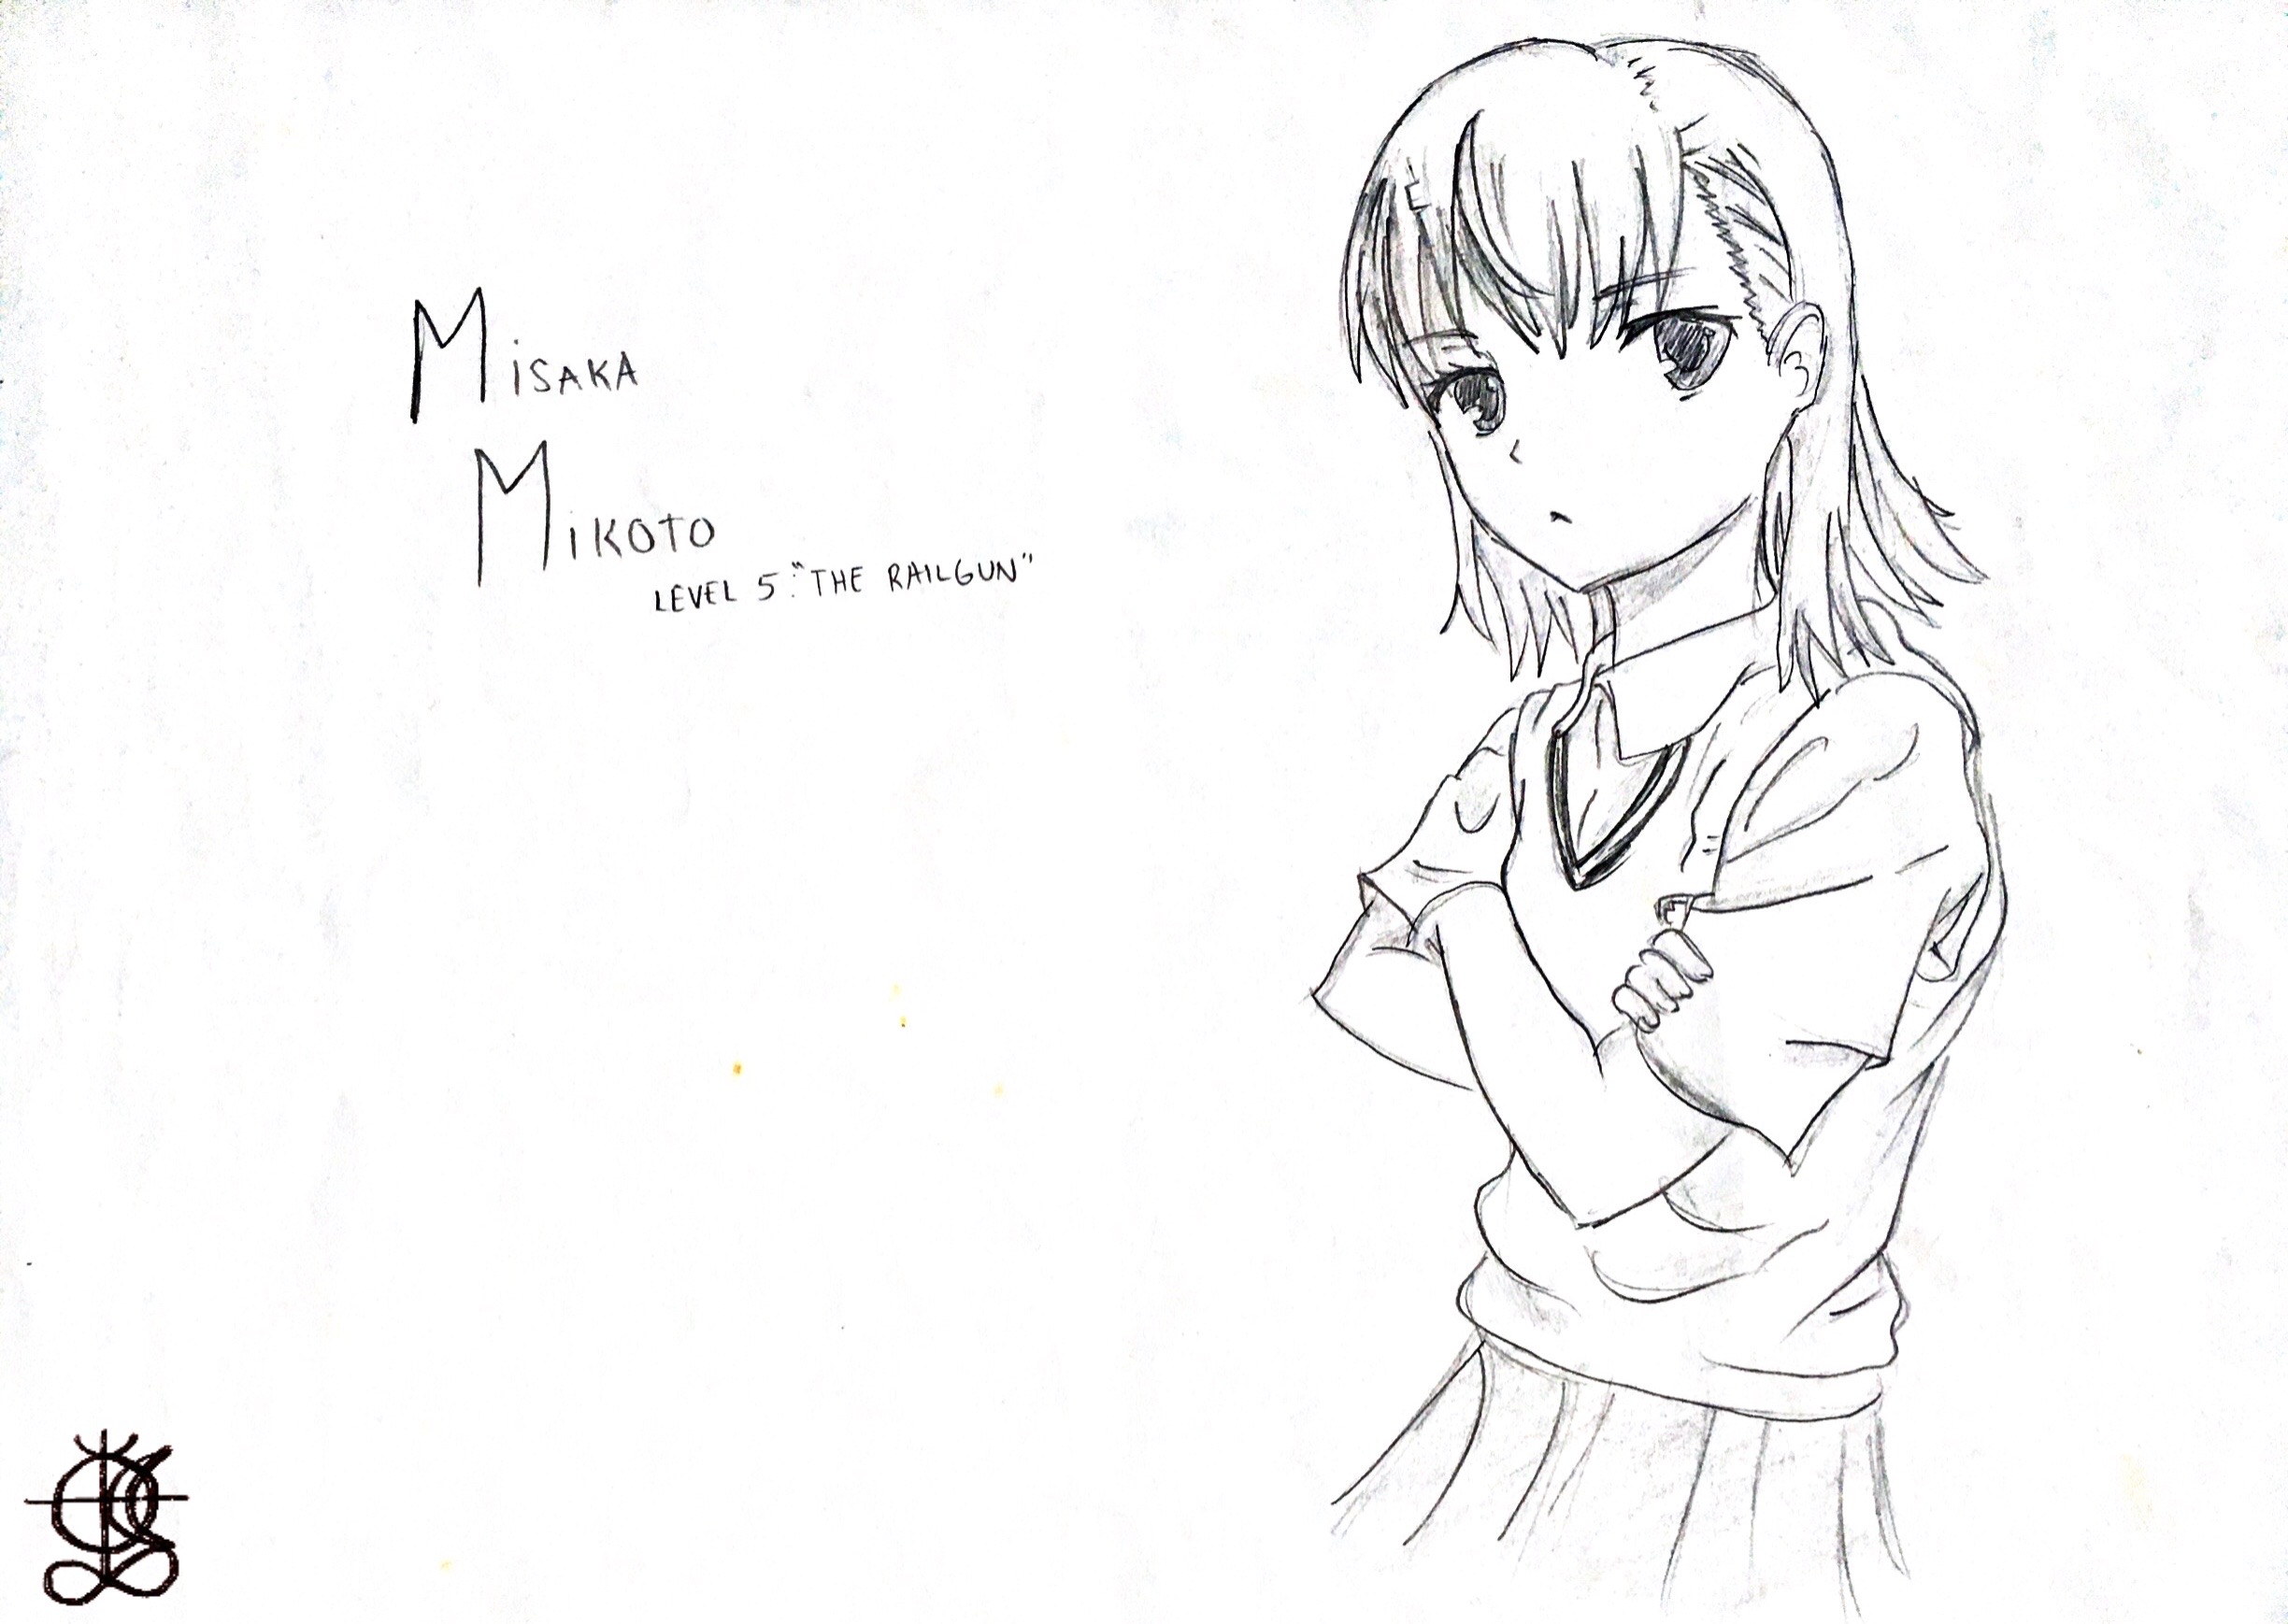 MiSAKA
MiKOTO
LEVEL 5: "THE RAILGUN"